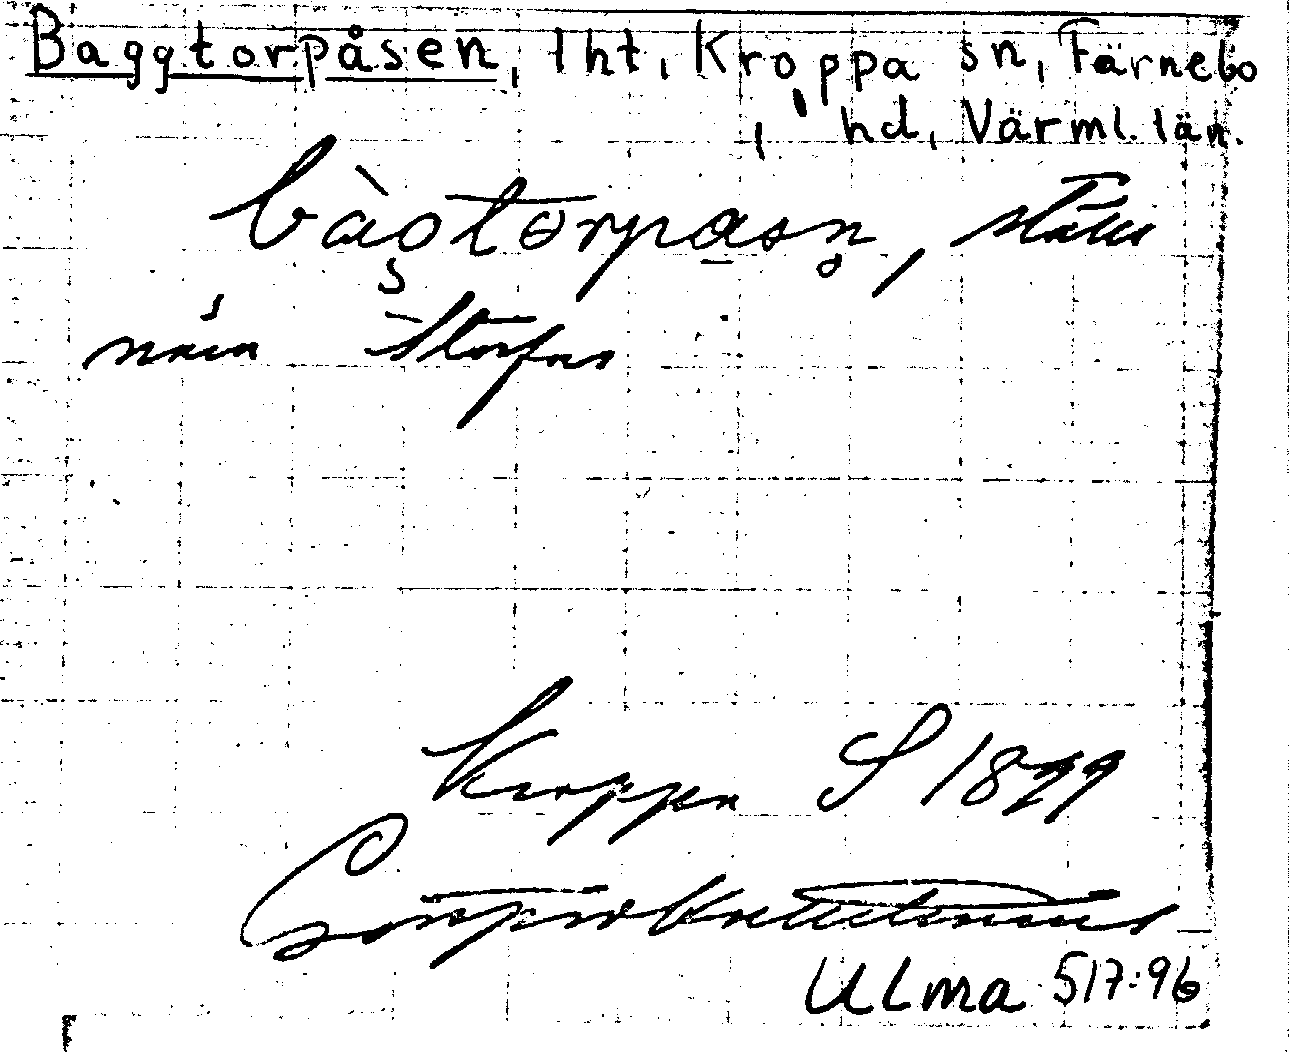 Baggtorpåsen, lht, Kroppa sn, Färnebo
hd, Värml. län.
bàgtorpasn̥, ställe
nära Storfors
Kroppa S 1899
ULMA 517:96